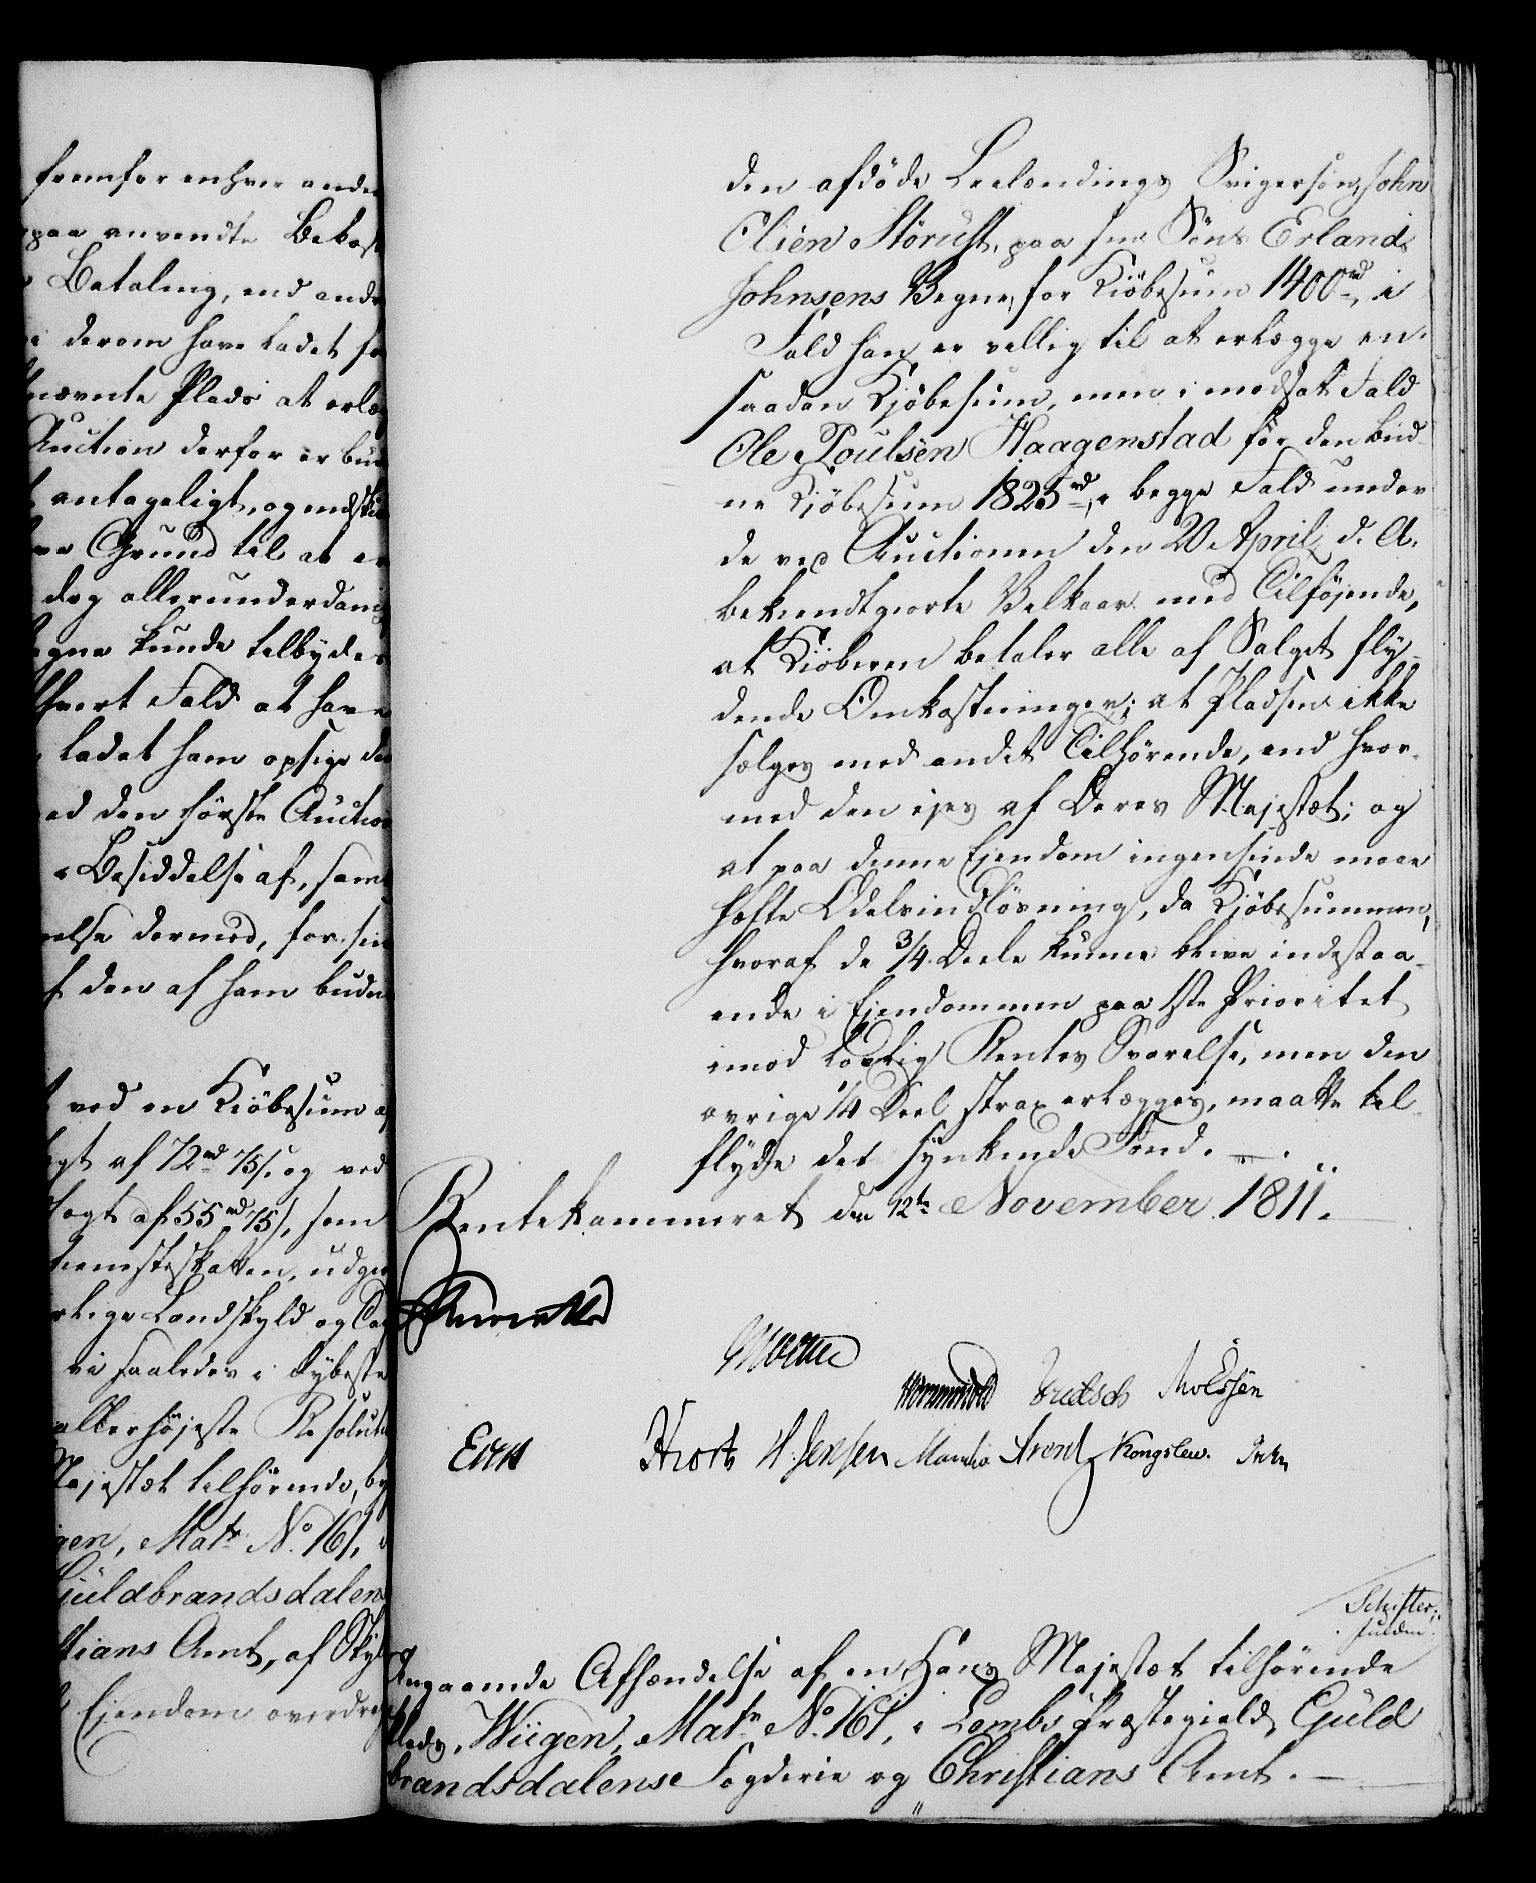 fremfor enhver anden
paa anvendte Bekost
Betaling, end andr
derom have ladet
nævnte Plads at erlæg
Auction derfor er bu
antageligt, og indski
Grund til at
dog allerunderdanig
egne kunde tilbydes
hvert Fald at have
ladet ham opsige de
ed den første Auction
Besiddelse af, samt
else dermed, for sin
f den af ham budn
ved en Kiöbesum a
gt af 72rd 75/ og ved
togt af 55rd 75/, som
tieneste skatten, udgiør
rlige Landskyld og
vi saaledes i dybeste
allerhøjeste Resoluti
Majestæt tilhørende,
gen, Matr No. 161,
Guldbrandsdalen
tians Amt, af Skyl
Ejendom overdrag
den afdöde Leelændings Svigersön, John
Elien Störust, paa sin Söns Erland
Johnsens Vegne, for Kiöbesum 1400rd, i
Fald han er villig til at erlægge en
saadan Kjöbesum, men i modsat Fald
Ole Poulsen Haagenstad for den bud-
ne Kjöbesum 1825rd, i begge Fald under
de ved Auctionen den 20 April d. A.
bekiendtgiorte Vilkaar med Tilföjende,
at Kiöberen betaler alle af Salget fly-
dende Omkostninger; at Pladsen ikke
sælges med andet Tilhörende, end hvor-
med den ejes af Deres Majestæt; og
at paa denne Ejendom ingensinde maae
hæfte Odelsindlösning, da Kjöbesummen,
hvoraf de 3/4 Deele kunne blive indestaa-
ende i Ejendommen paa 1ste Prioritet
imod lovlig Rentes Svarelse, men den
øvrige 1/4 Deel strax erlægges, maatte til-
flyde det synkende Fond.
Rentekammeret den 12te November 1811.
Wormskiold Knudsch
Hiort H. Jensen Arentz Kongslew.
Schifter;
Angaaende Afhændelse af en Hans Majestæt tilhørende
Plads, Wiigen, Matr No. 161, i Lombs Præstegield, Guld
brandsdalens Fogderie og Christians Amt.